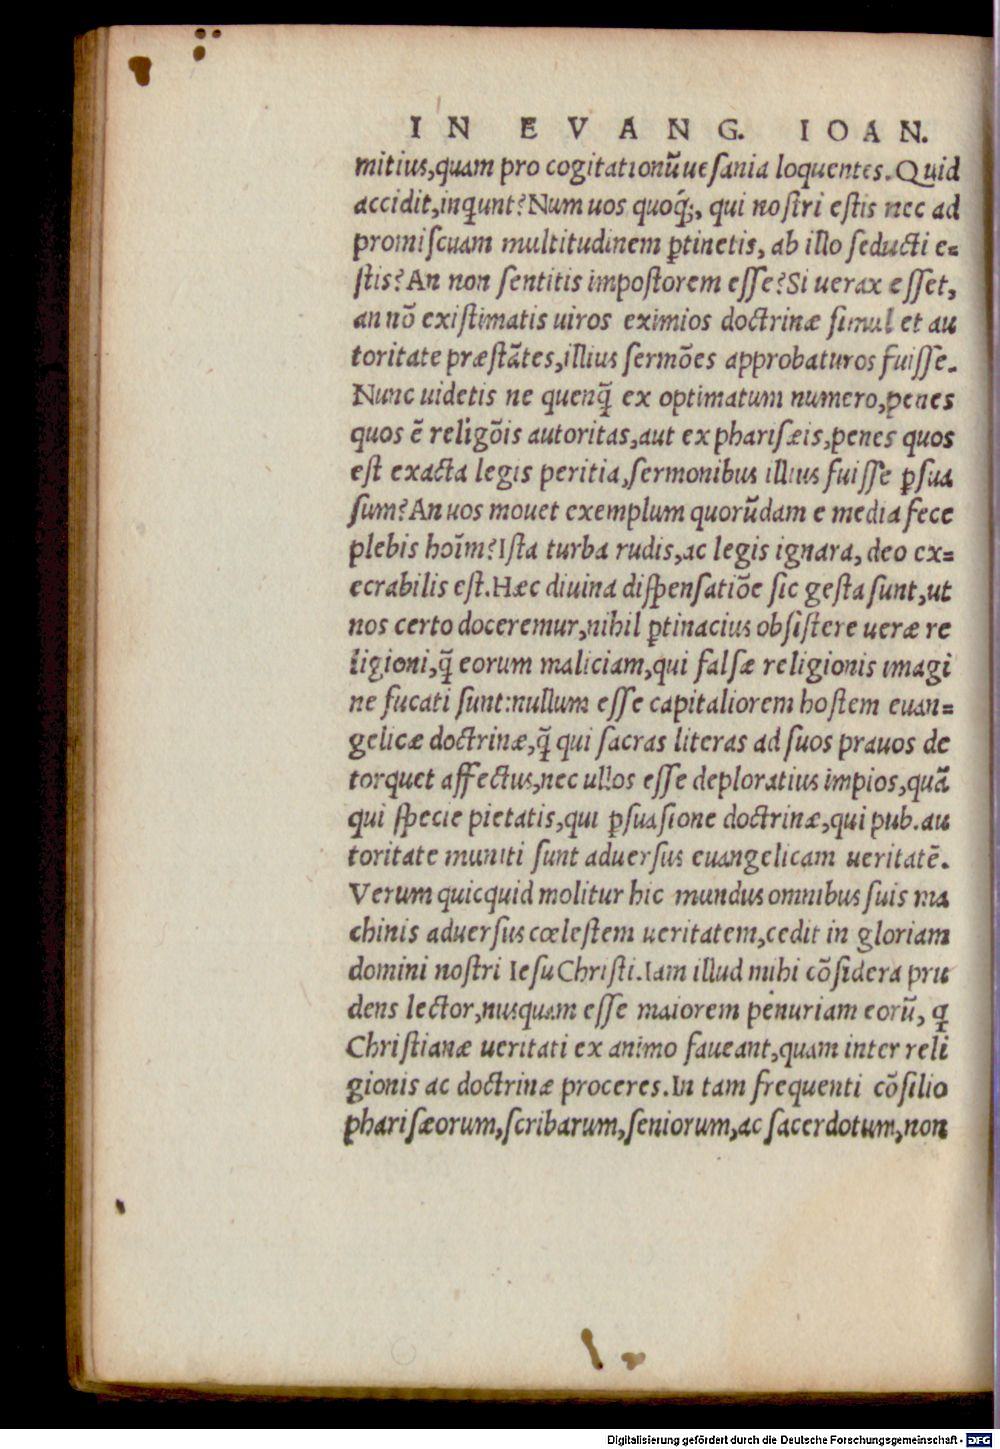 IN EVANG. IOAN.
mitius,quam pro cogitationũ uesania loquentes.Quid
accidit,inqunt?Num uos quoq́;, qui nostri estis nec ad
promiscuam multitudinem ꝑtinetis, ab illo seducti e=
stis?An non sentitis impostorem esse?Si uerax esset,
an nõ existimatis uiros eximios doctrinæ simul et au
toritate præstãtes,illius sermões approbaturos fuisse.
Nunc uidetis ne quenq̃ ex optimatum numero,penes
quos ẽ religõis autoritas,aut ex pharisæis,penes quos
est exacta legis peritia,sermonibus illius fuisse ꝑsua
sum?An uos mouet exemplum quorũdam e media fece
plebis hoĩm?Ista turba rudis,ac legis ignara, deo ex=
ecrabilis est.Hæc diuina dispensatiõe sic gesta sunt,ut
nos certo doceremur,nihil ꝑtinacius obsistere ueræ re
ligioni,q̃ eorum maliciam,qui falsæ religionis imagi
ne fucati sunt:nullum esse capitaliorem hostem euan=
gelicæ doctrinæ,q̃ qui sacras literas ad suos prauos de
torquet affectus,nec ullos esse deploratius impios,quã
qui specie pietatis,qui ꝑsuasione doctrinæ,qui pub.au
toritate muniti sunt aduersus euangelicam ueritatẽ.
Verum quicquid molitur hic mundus omnibus suis ma
chinis aduersus cœlestem ueritatem,cedit in gloriam
domini nostri Iesu Christi.Iam illud mihi cõsidera pru
dens lector,nusquam esse maiorem penuriam eorũ, q
Christianæ ueritati ex animo faueant,quam inter reli
gionis ac doctrinæ proceres.In tam frequenti cõsilio
pharisæorum,scribarum,seniorum,ac sacerdotum,non
Digitalisierung gefördert durch die Deutsche Forschungsgemeinschaft - DFG